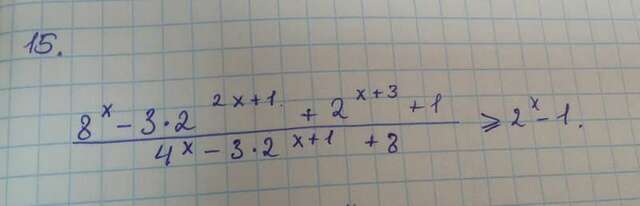 15.
8^x - 3·2^{2x+1} + 2^{x+3} + 1
4^x - 3·2^{x+1} + 8
⩾ 2^x - 1.